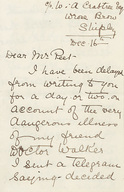 c/o A Crabtree Esq
Wrose Brow
Shipley
Dec 16
Dear Mr Peet-
I have been delayed
from writing to you
for a day or two on
account of the very
dangerous illness
of my friend
Doctor Walker
I sent a telegram
saying - decided